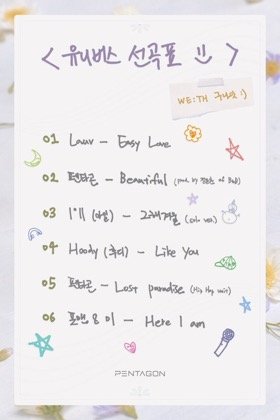 < 유니버스 선곡표 >
WE:TH :)
01 Lauv – Easy Love
02 펜타곤 – Beautiful (prod. by 정일훈 of BtoB)
03 (아일) – ver)
04 Hoody (후디) – Like You
05 펜타곤 – Lost paradise (Hip Hop unit)
06 포맨 & – Here I am
PENTAGON